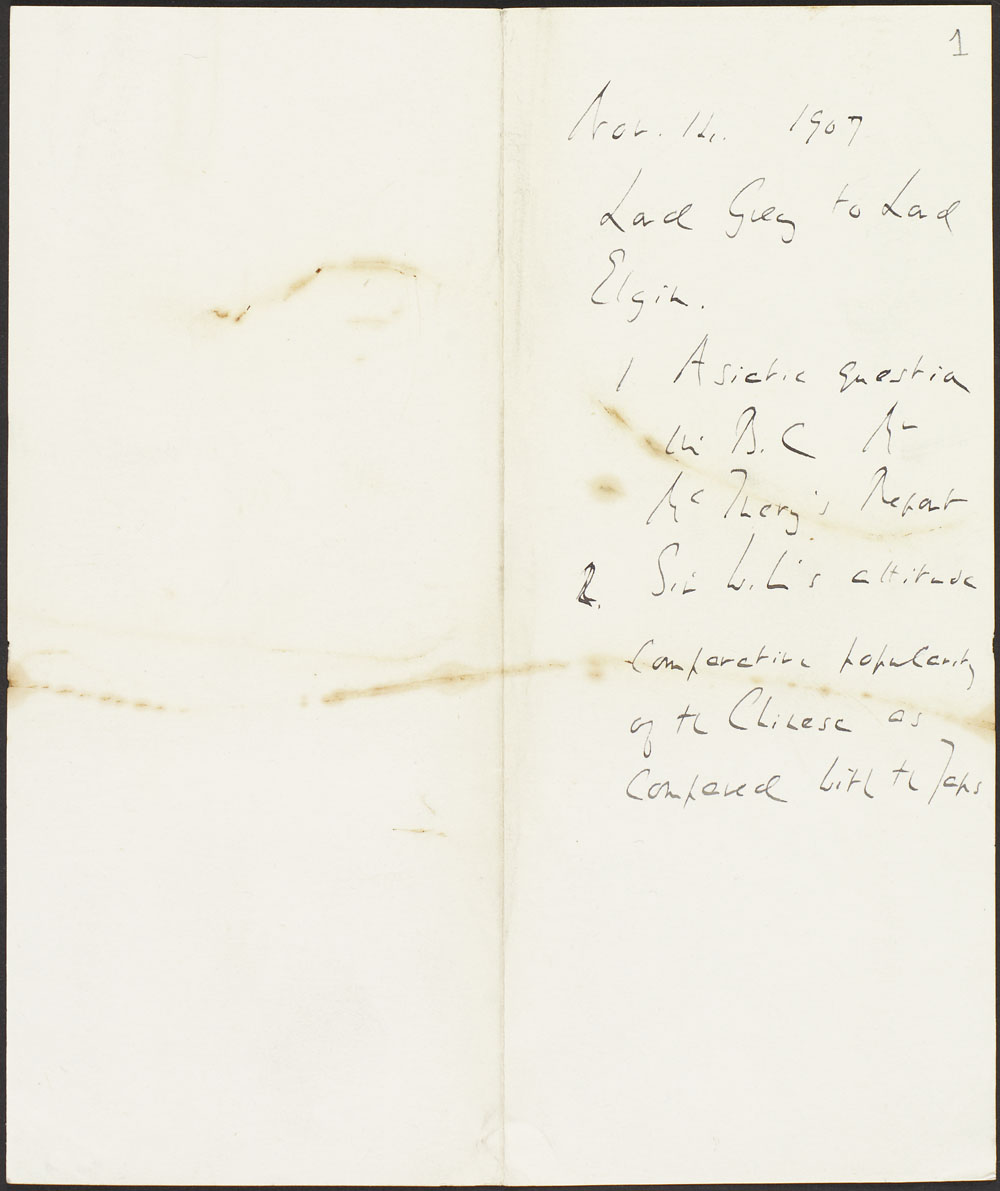 1
Nov. 14. 1907
Lord Grey to Lord
Elgin.
1 Asiatic question
in B.C Mr
Mc Inery's Report
2. Sir W.L's attitude
Comparative popularity
of th Chinese as
Compared with th Japs